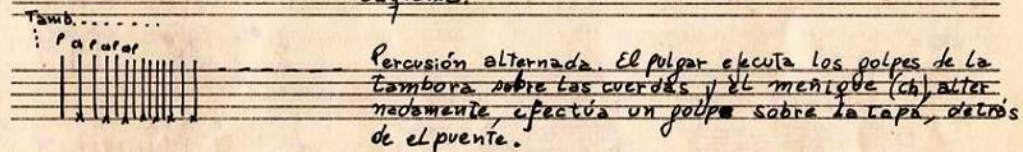 esquema.
Tamb.........
P a P a P a P
Percusión alternada. El pulgar ejecuta los golpes de la
tambora sobre las cuerdas y el meñique (ch), alter
nadamente, efectúa un golpe sobre la tapa, detrás
de el puente.